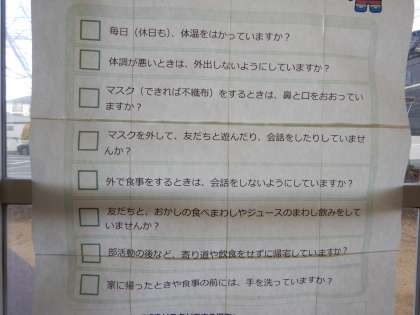 毎日（休日も）、体温をはかっていますか？
体調が悪いときは、外出しないようにしていますか？
マスク（できれば不織布）をするときは、鼻と口をおおってい
ますか？
マスクを外して、友だちと遊んだり、会話をしたりしていませ
んか？
外で食事をするときは、会話をしないようにしていますか？
友だちと、おかしの食べまわしやジュースのまわし飲みをして
いませんか？
部活動の後など、寄り道や飲食をせずに帰宅していますか？
家に帰ったときや食事の前には、手を洗っていますか？